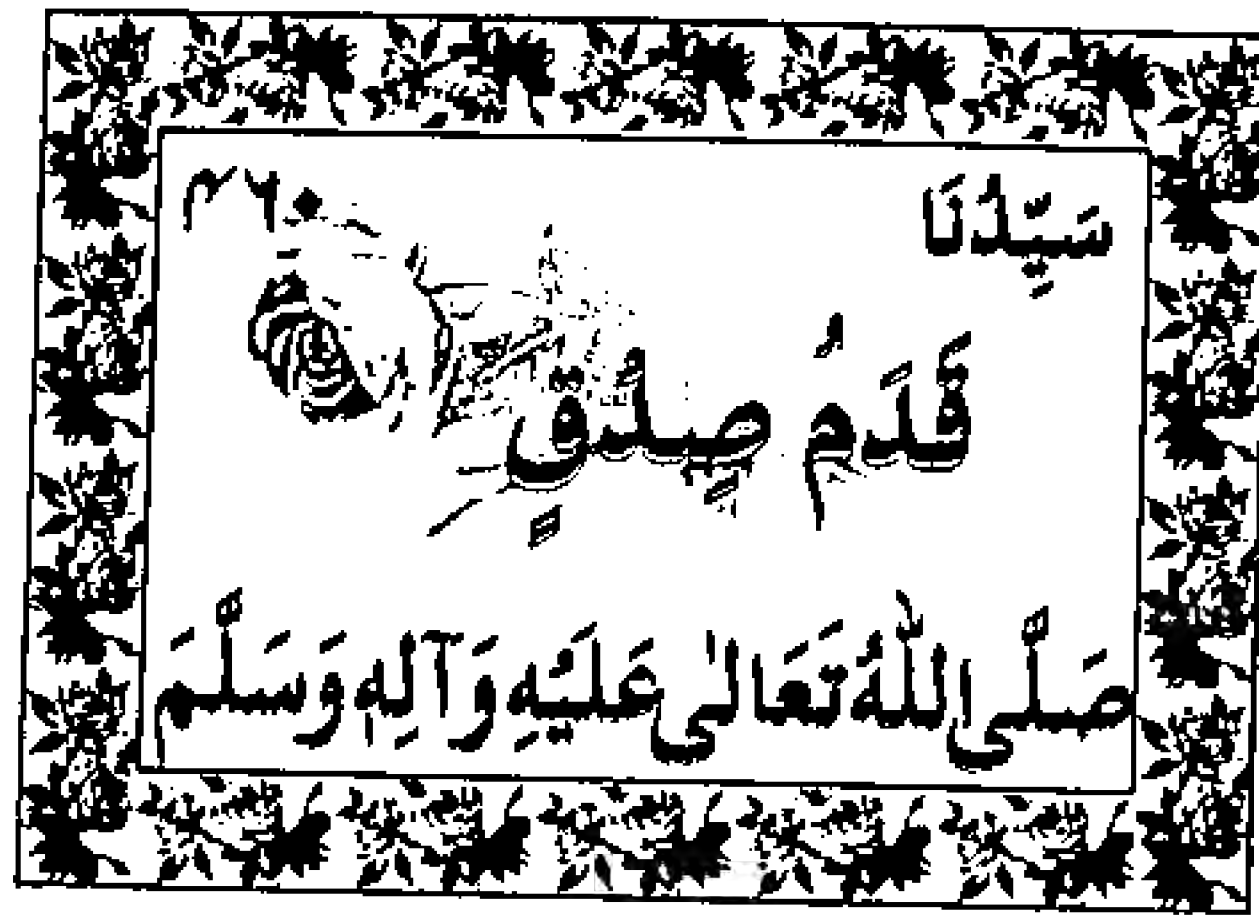 سَيِّدُنَا ۴۶۰
قَدَمُ صِدْقٍ
صَلَّى اللّٰهُ تَعَالٰى عَلَيْهِ وَآلِهٖ وَسَلَّمَ